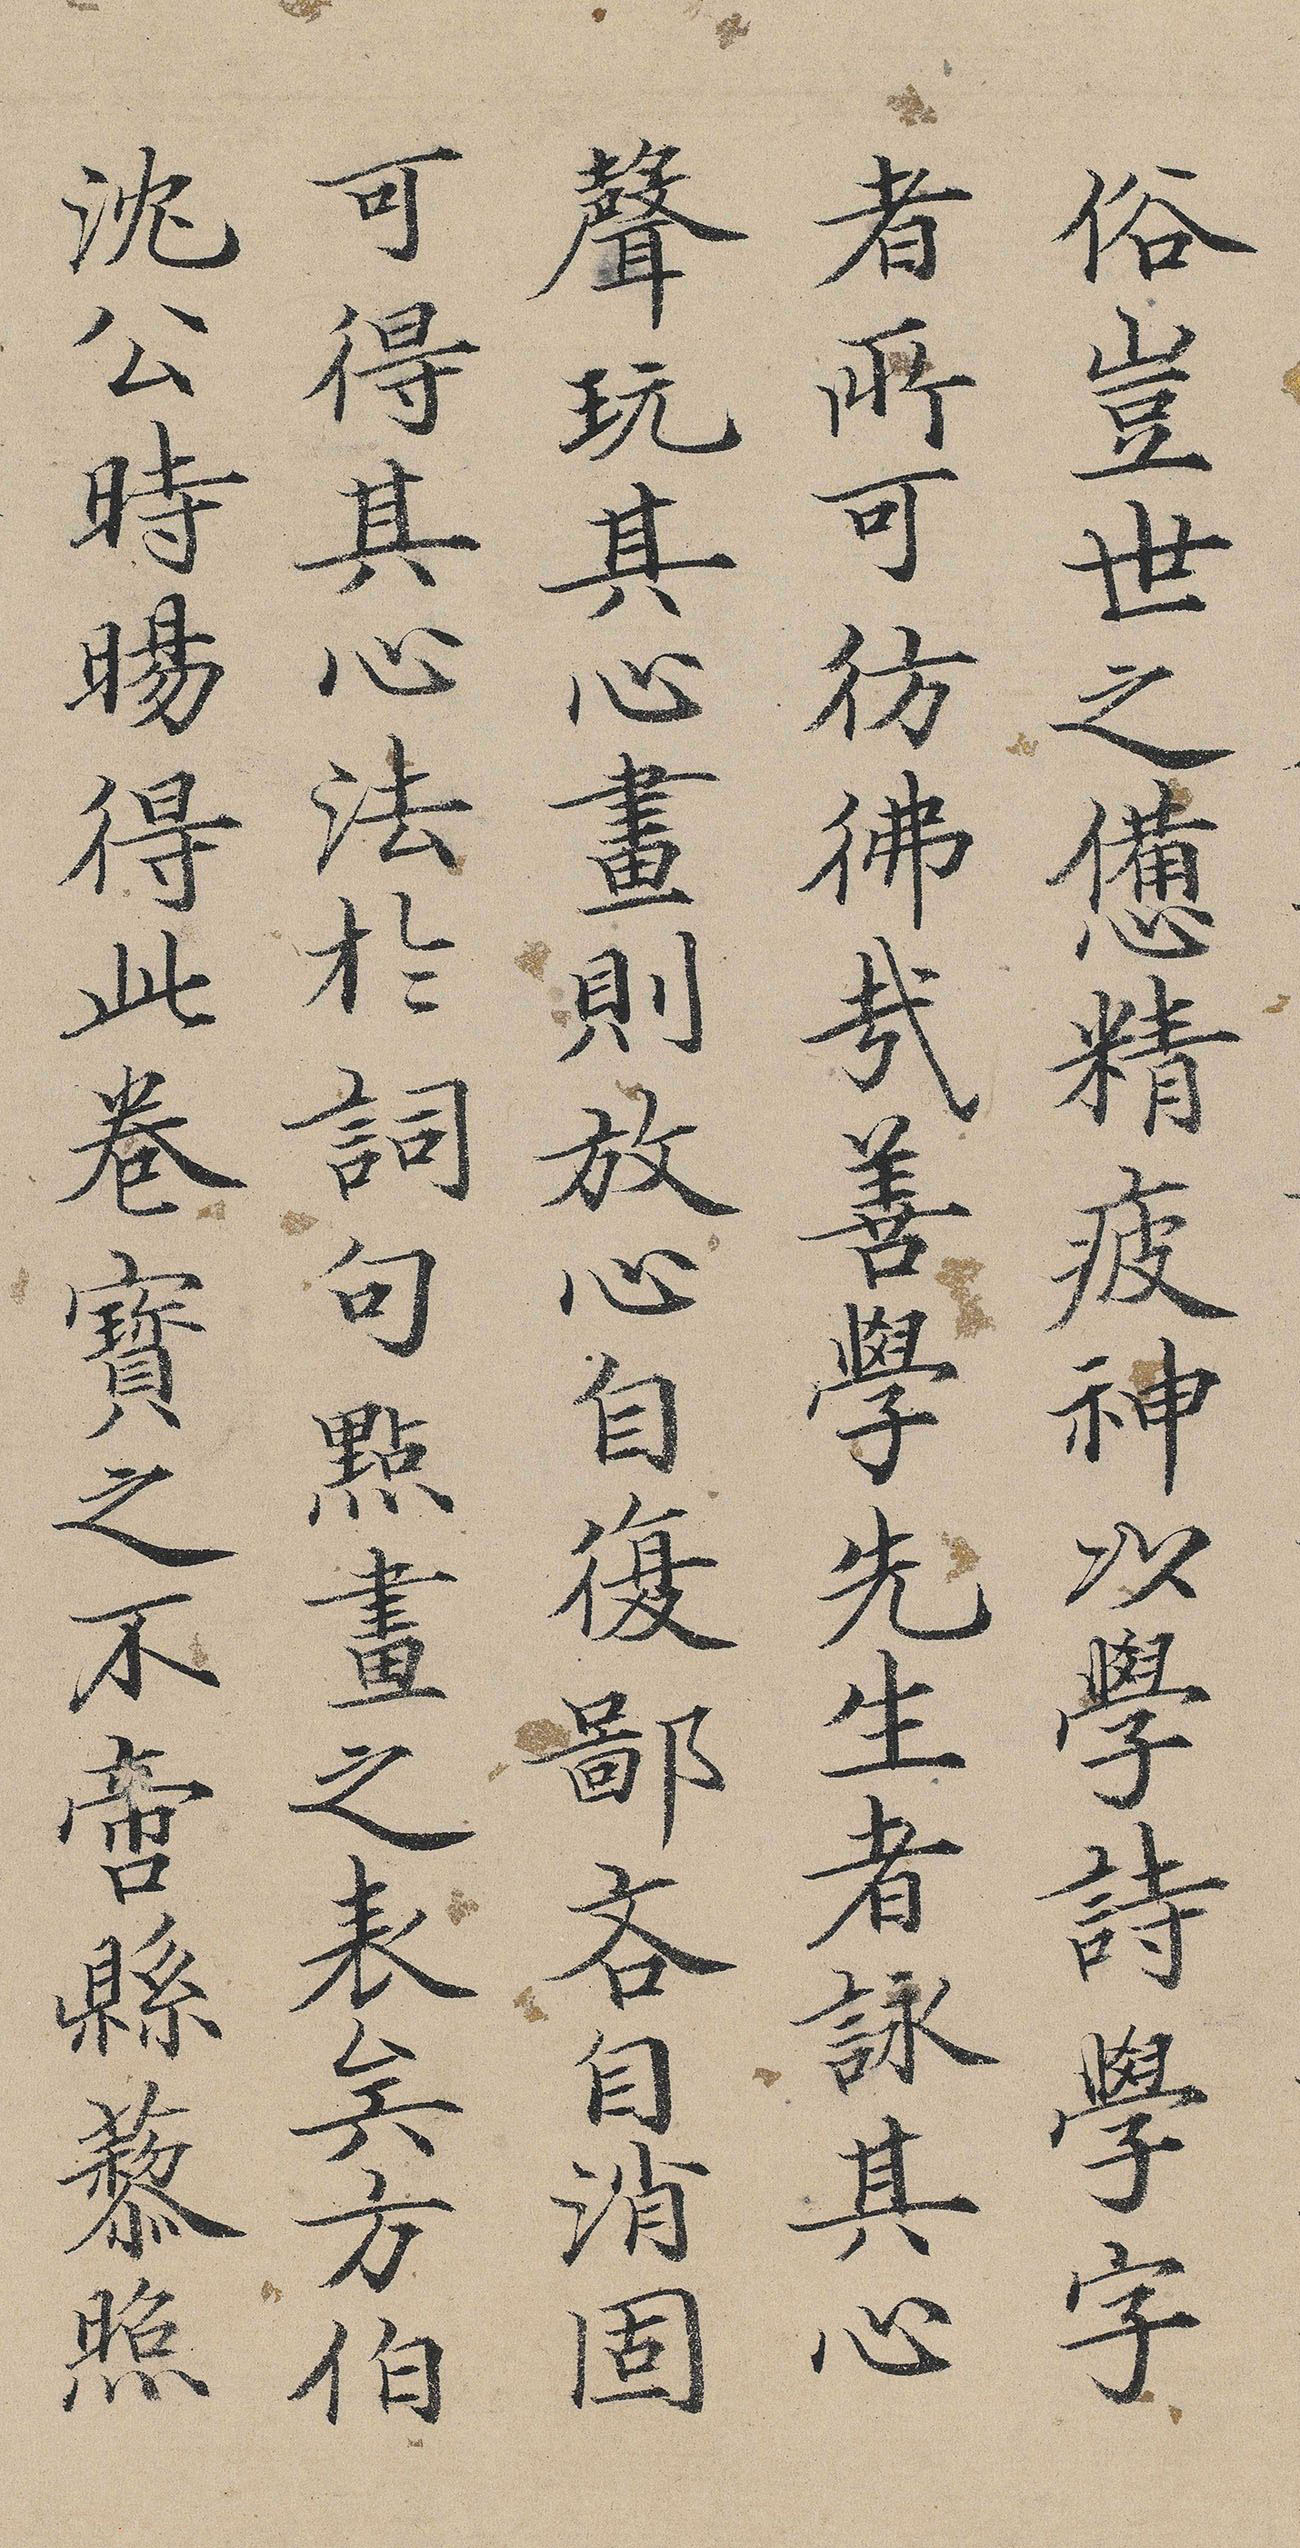 俗豈世之憊精疲神以學詩學字
者所可彷彿哉善學先生者詠其心
聲玩其心畫則放心自復鄙吝自消固
可得其心法於詞句點畫之表矣方伯
沈公時暘得此卷寶之不啻縣藜照